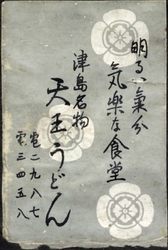 明るい氣分
気楽な食堂
津島名物
天王うどん
電二九八七
電三四五八